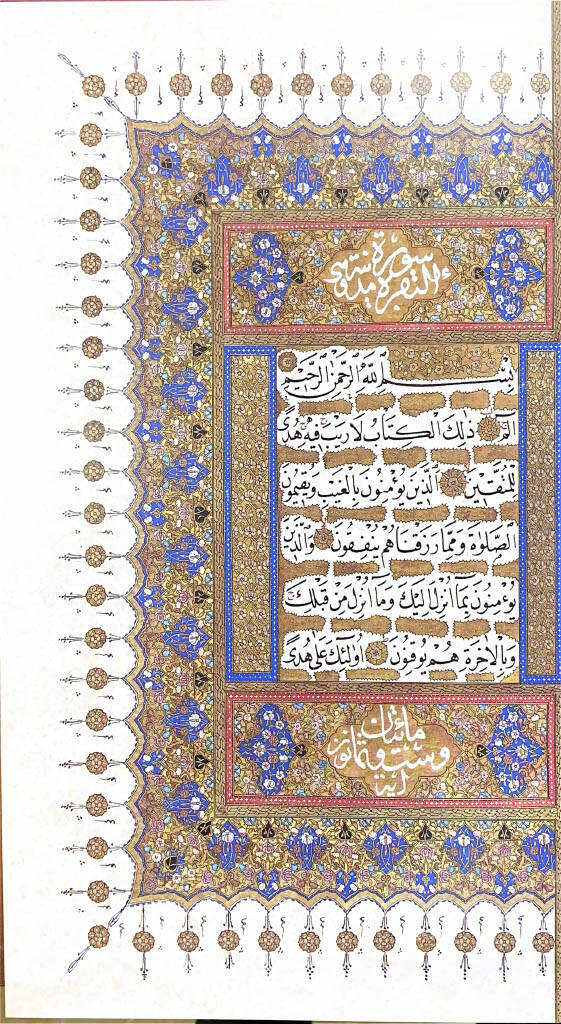 سورة
البقرة مدنية وهي
بسم الله الرحمن الرحيم
الم ذلك الكتاب لا ريب فيه هدى
للمتقين الذين يؤمنون بالغيب ويقيمون
الصلوة ومما رزقناهم ينفقون والذين
يؤمنون بما انزل اليك وما انزل من قبلك
وبالاخرة هم يوقنون اولئك على هدى
مائتان
وست وثمانون
اية